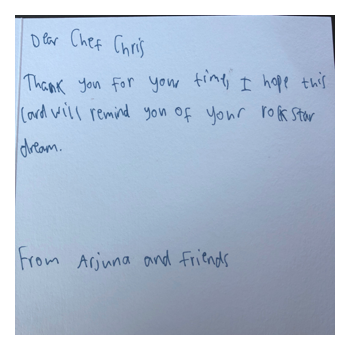 Dear Chef Chris
Thank you for your time, I hope this
Card will remind you of your rockstar
dream.
From Arjuna and Friends